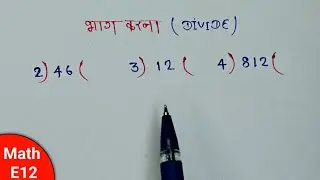 भाग करना (DIVIDE)
2)46( 3)12( 4)812(
Math
E12